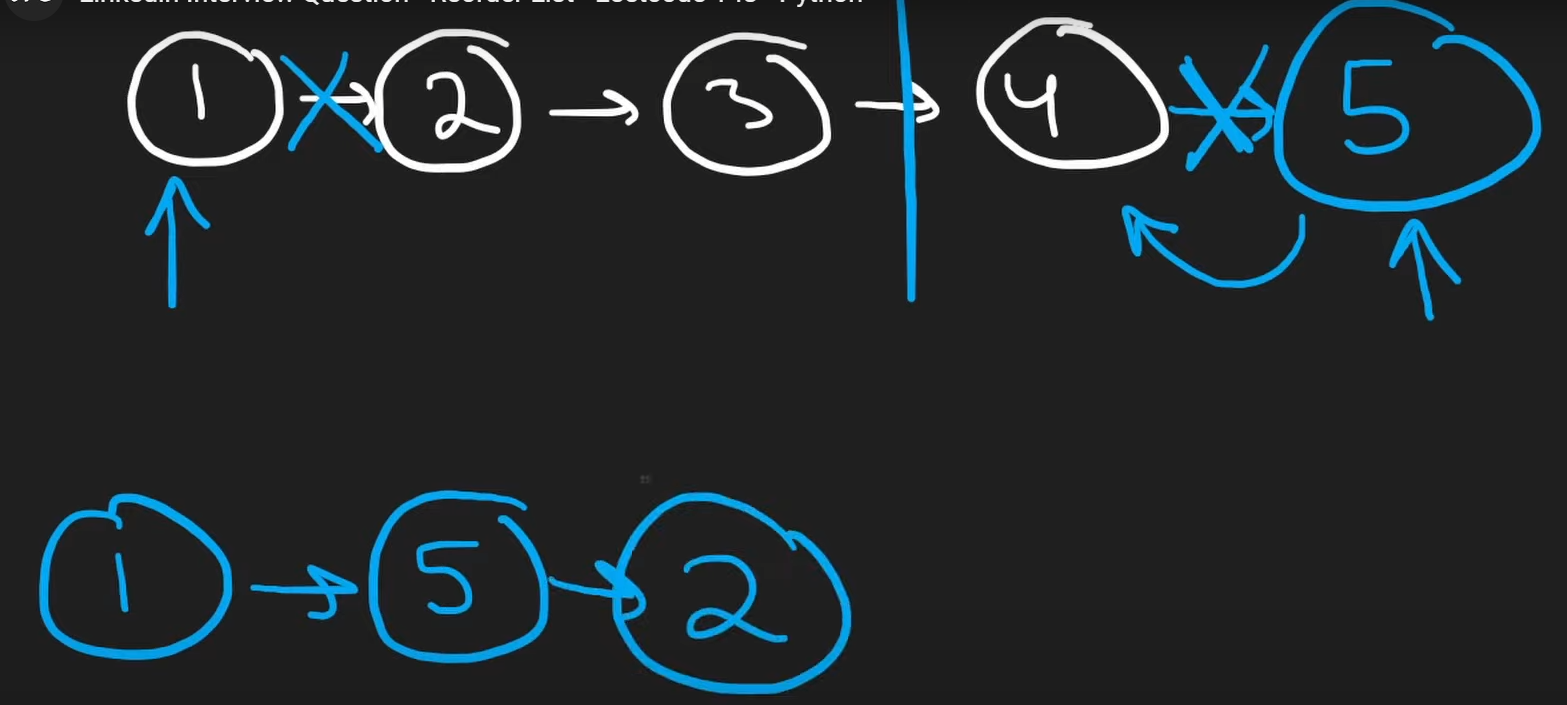 Linkedin Interview Question - Reorder List - Leetcode 143 - Python
1 → 2 → 3 → 4 → 5
1 → 5 → 2